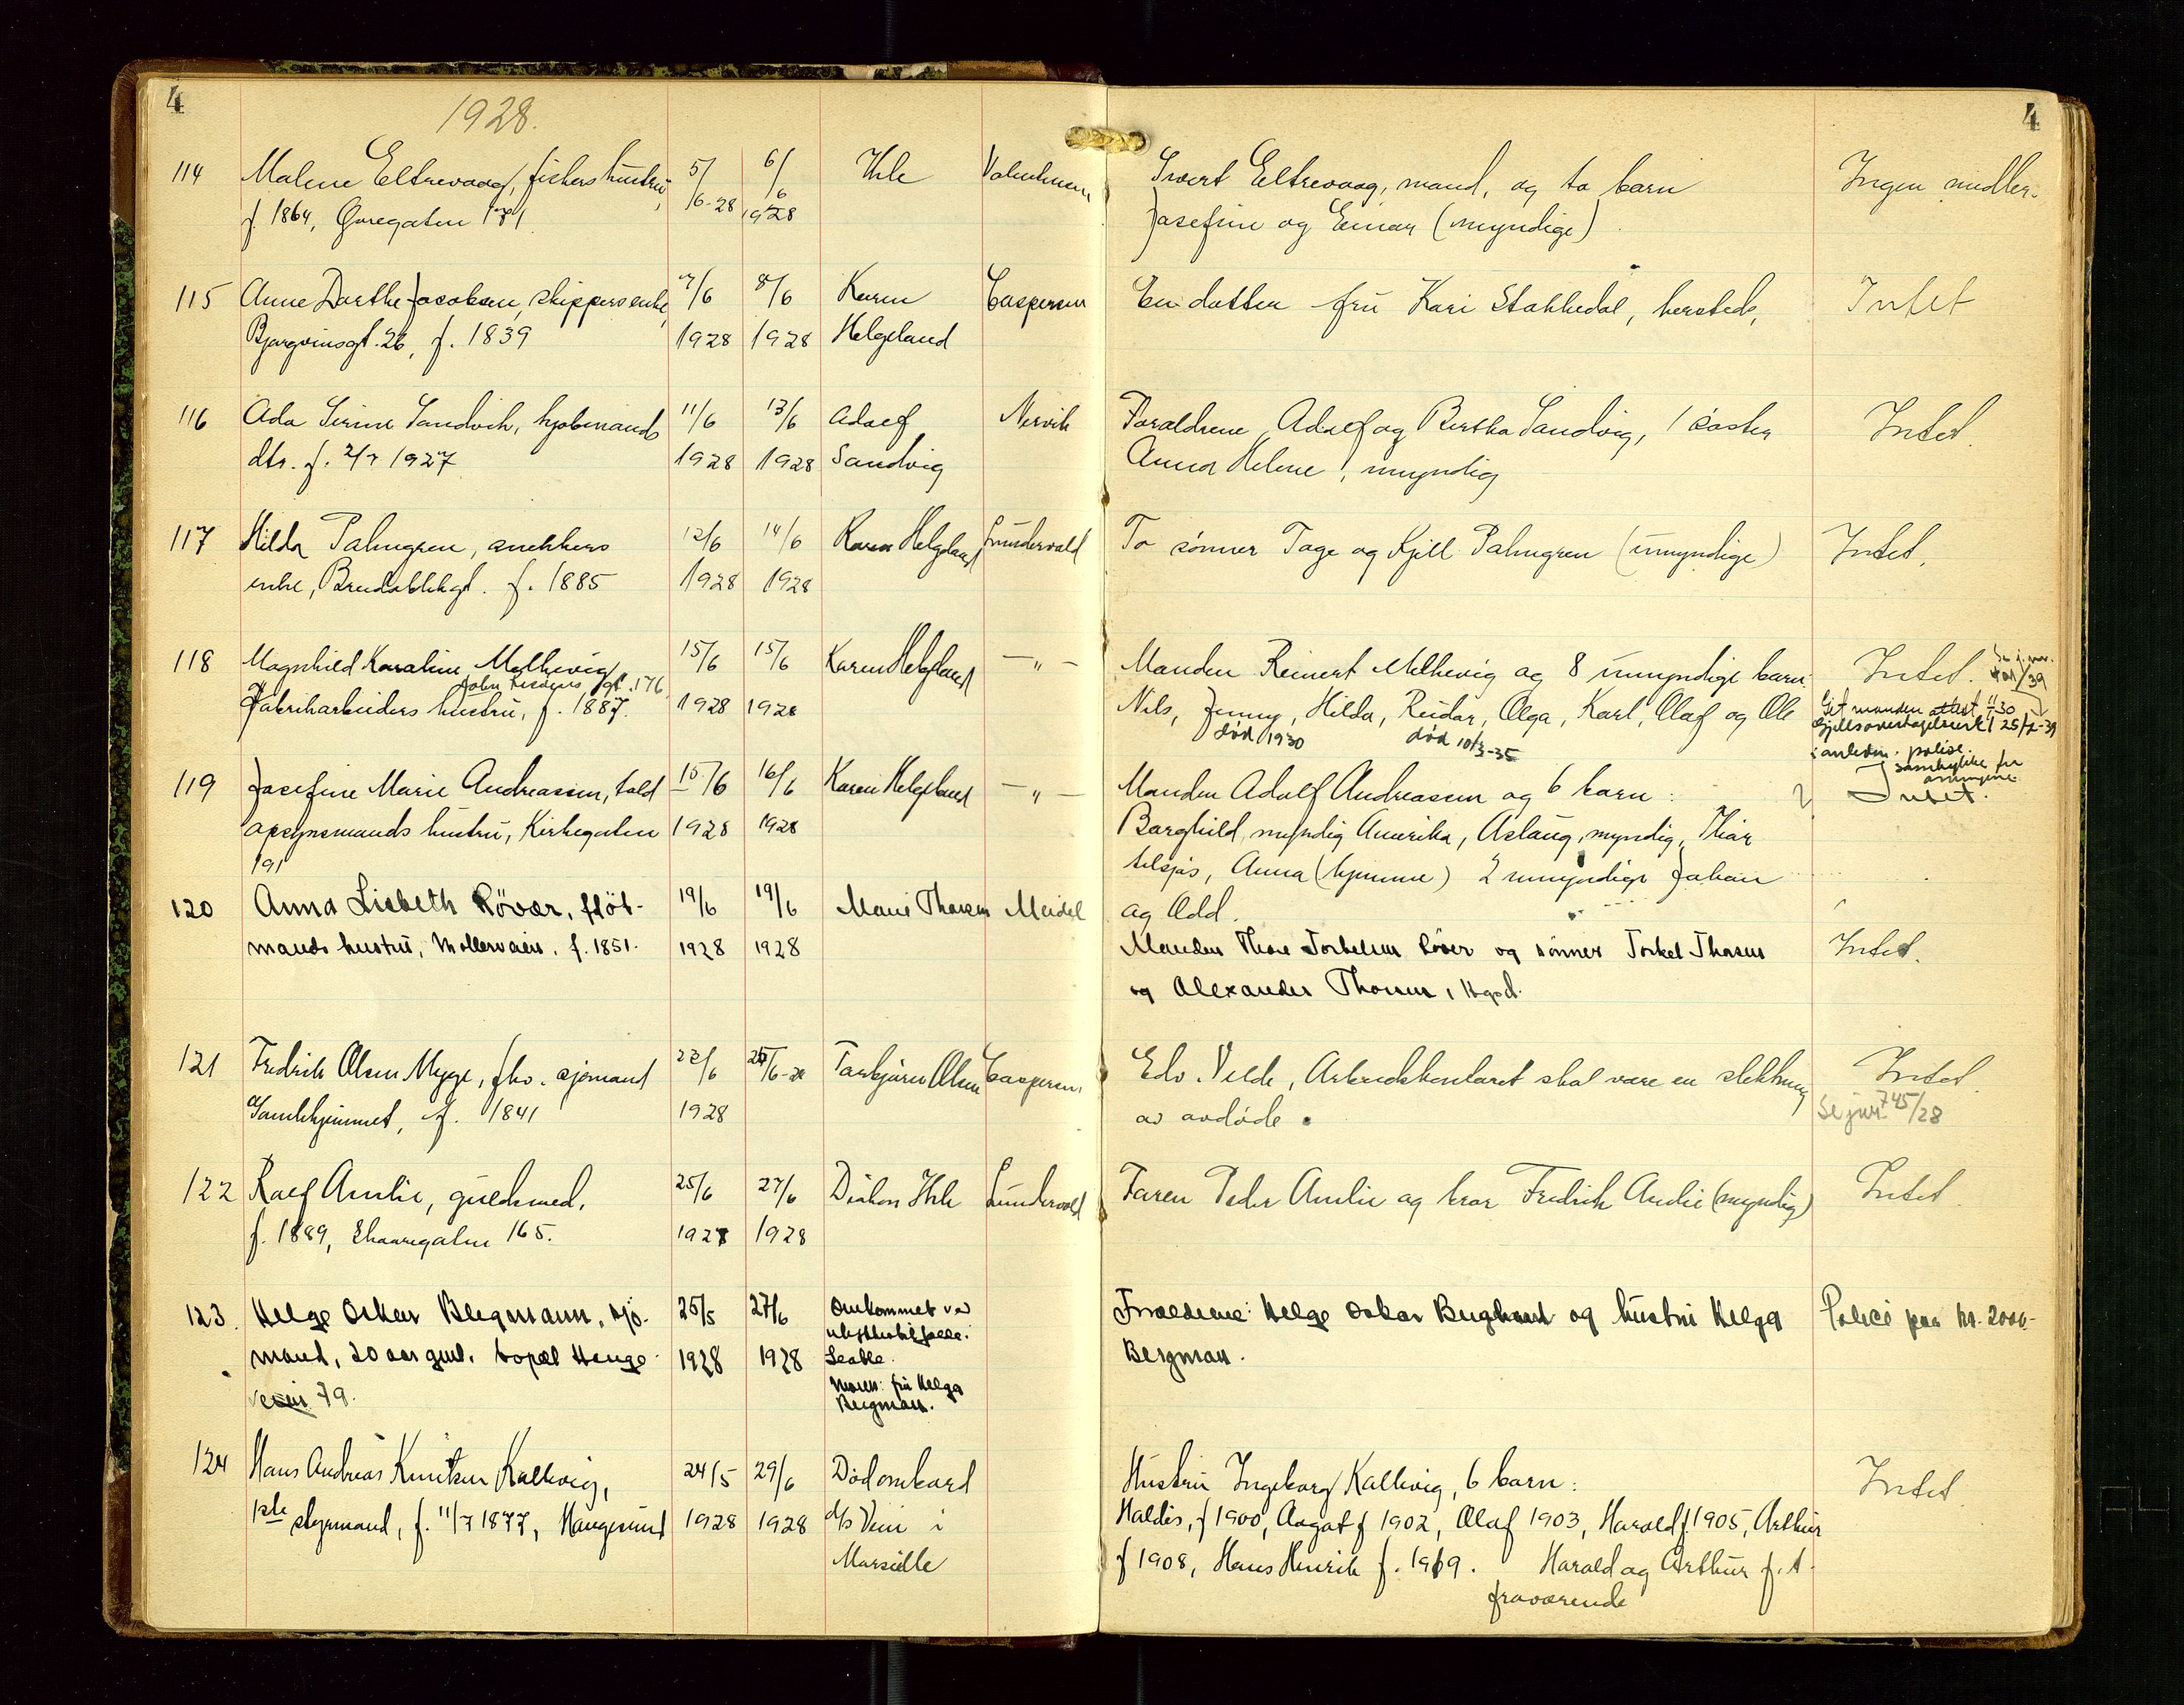 4
1928.
4
114 Malene Eltrevaag, fiskers hustru, 5/6-28 6/6 1928 Ihle Valentinsen Sivert Eltrevaag, mand, og to barn Ingen midler.
f. 1864, 171 Josefine og Einar (myndige)
115 Anne Dorthe Jacobsen, skippersenke, 7/6 8/6 Karen Caspersen En datter fru Kari Stakkedal, hersteds, Intet
Bjørgvinsgt. 26, f. 1839 1928 1928 Helgeland
116 Ada Serine Sandvik, kjøbmands 11/6 13/6 Adolf Nervik Forældrene Adolf og Bertha Sandvig, 1 søster Intet.
dtr. f. 2/7 1927 1928 1928 Sandvig Anna Helene, umyndig
117 Hilda Palmgren, snekkers 12/6 14/6 Karen Helgeland Lundervold To sønner Tage og Kjell Palmgren (umyndige) Intet.
enke, Breidablikgt. f. 1885 1928 1928
118 Magnhild Karoline Melhevig 15/6 15/6 Karen Helgeland —"— Manden Reinert Melhevig og 8 umyndige barn: Intet.
gt. 176
Fabrikarbeiders hustru, f. 1887. 1928 1928 Nils, Jenny, Hilda, Reidar, Olga, Karl, Olaf og Ole manden attest
død 1930 død 10/3-35 polise
119 Josefine Marie Andreassen, told 15/6 16/6 Karen Helgeland —"— Manden Adolf Andreassen og 6 barn: Intet.
opsynsmands hustru, Kirkegaten 1928 1928 Borghild, myndig Amerika, Aslaug, myndig, Thor
191 tilsjøs, Anna (hjemme) 2 umyndige Johan
og Odd.
120 Anna Lisbeth Røvær, fløt- 19/6 19/6 Marie Thorsen Meidel
mands hustru, Møllerveien. f. 1851. 1928 1928 Manden Thore Torkelsen Røvær og sønner Torkel Thorsen Intet.
og Alexander Thorsen, Hgsd.
121 Fredrik Olsen Mygge, fhv. sjømand 22/6 /6-28 Torbjørn Olsen Caspersen Edv. Velde, Arbeidskontoret skal være en slektning Intet.
Gamlehjemmet, f. 1841 1928 av avdøde. Se jur. 745/28
122 Rolf Amlie, guldsmed, 25/6 27/6 Diakon Ihle Lundervold Faren Peder Amlie og bror Fredrik Amlie (myndig) Intet.
f. 1889, Skaaregaten 165. 1928 1928
123. Helge Oskar Bergmann, sjø- 25/5 27/6 Omkommet ved Forældrene: Helge Oskar Bergmann og hustru Helga Police paa kr. 2000-
ulykkestilfælle.
mand, 20 aar gml. bopæl Hauge- 1928 1928 Seattle. Bergman.
veien 79. Moren: fru Helga
Bergman.
124 Hans Andreas Knutsen Kallevig, 24/5 29/6 Død ombord Hustru Ingeborg Kallevig, 6 barn: Intet.
1ste styrmand, f. 11/7 1877, Haugesund 1928 1928 d/s i Haldis, f 1900, Aagot f 1902, Olaf 1903, Harald f. 1905, Arthur
Marseille f 1908, Hans Henrik f. 1919. Harald og Arthur f. t.
fraværende